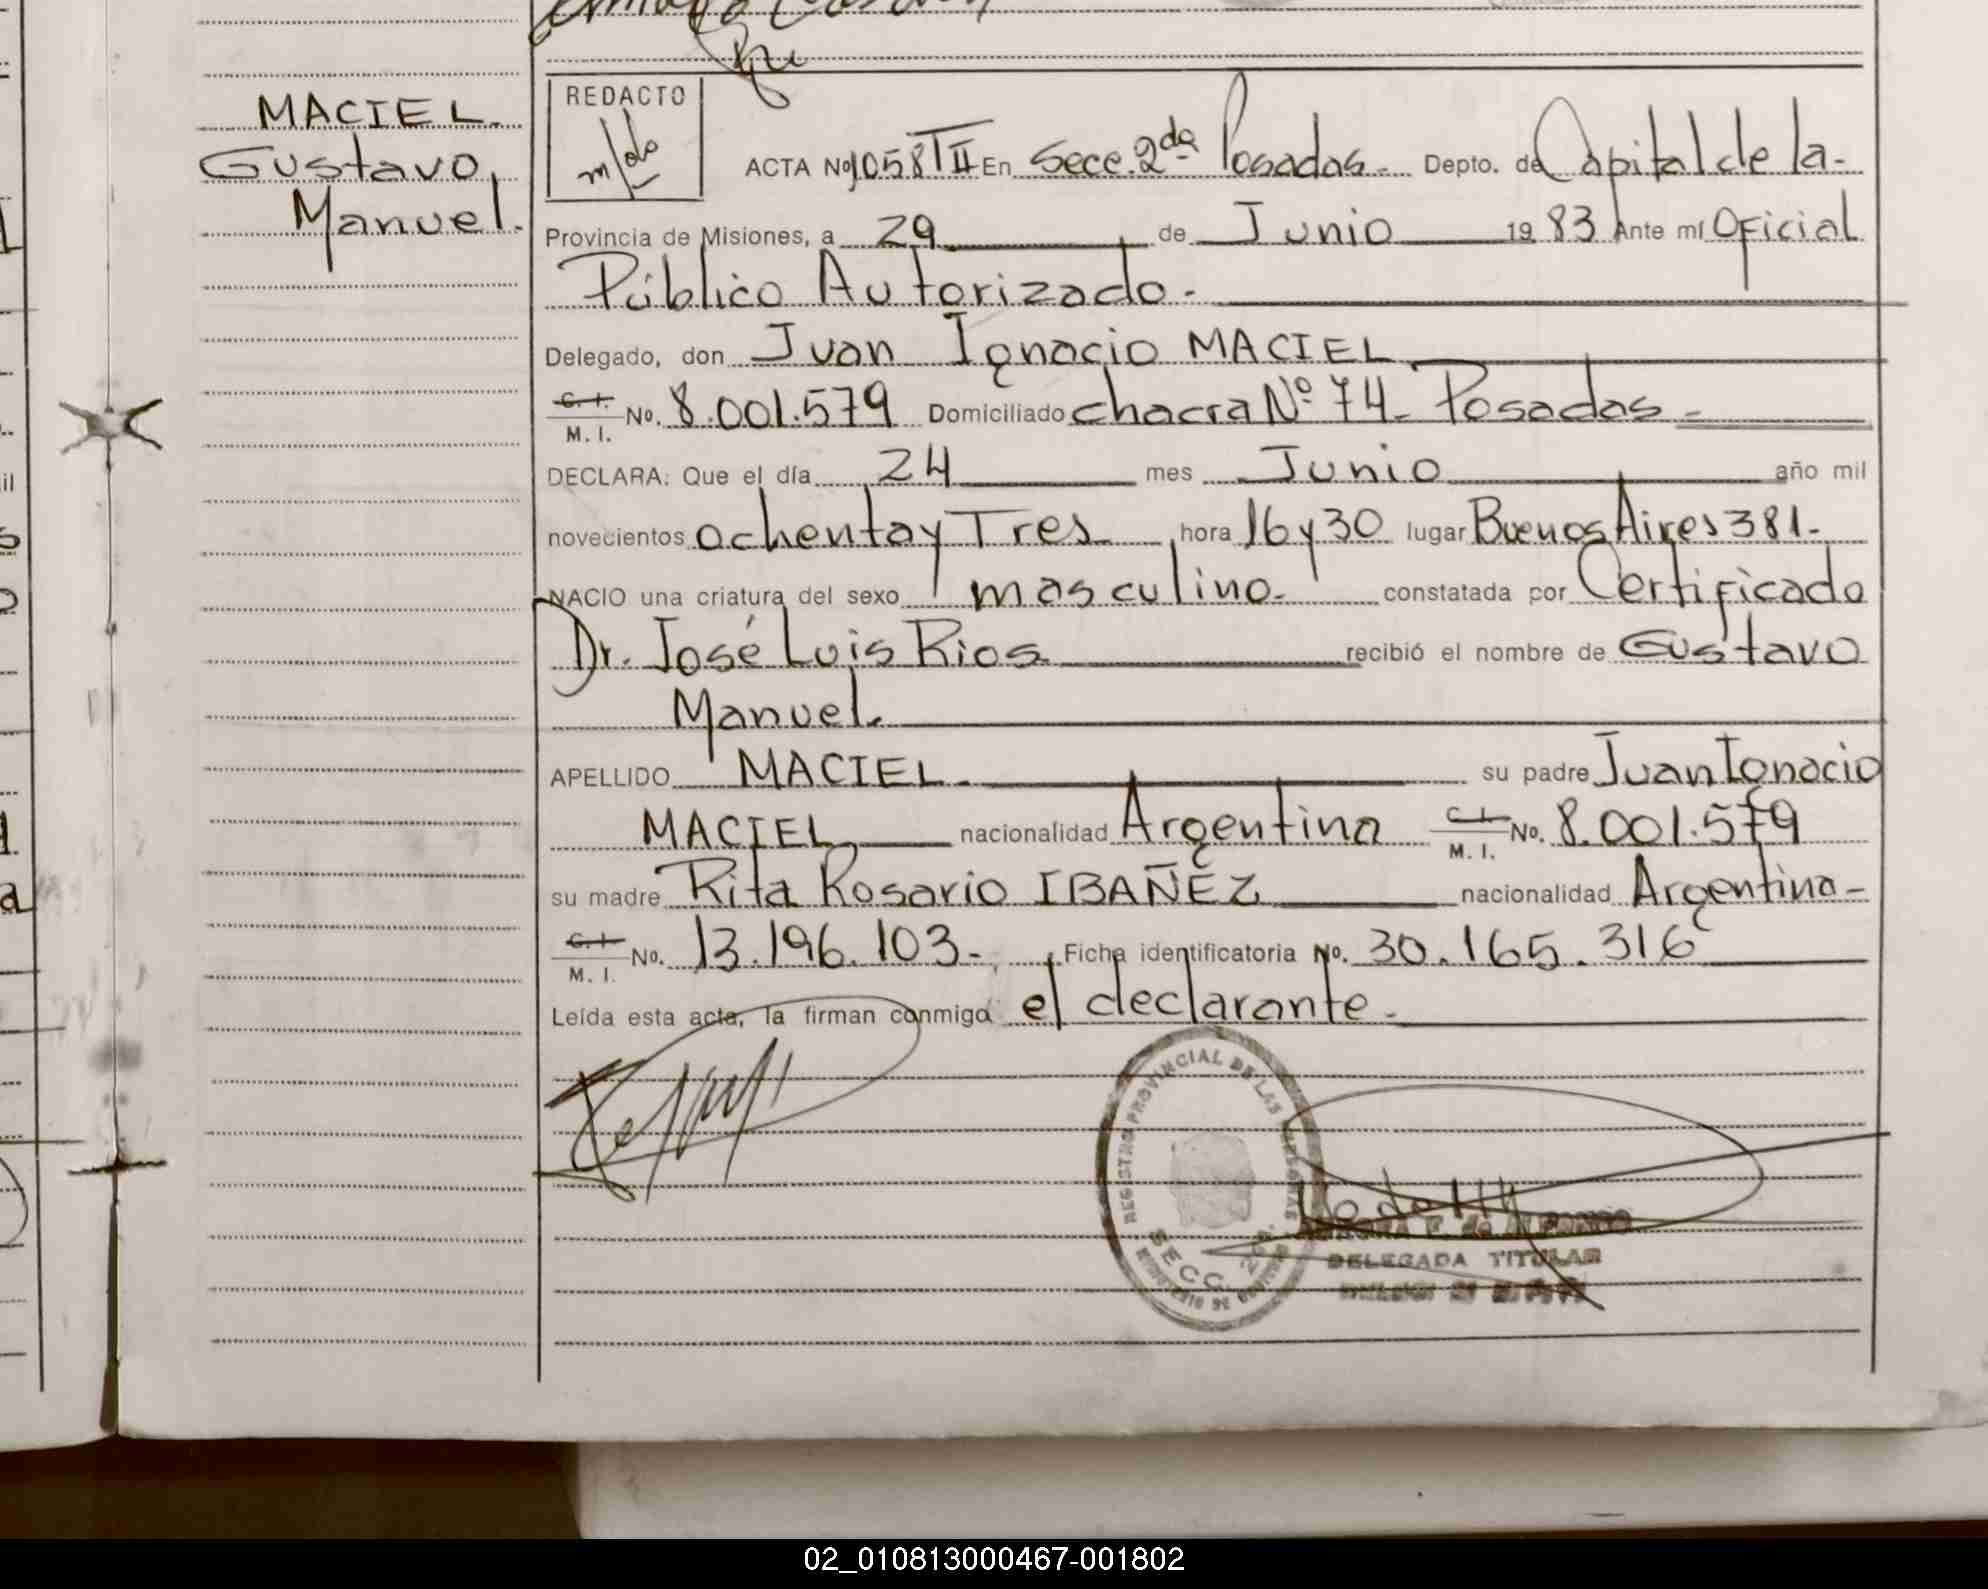 MACIEL.
Gustavo
Manuel.
REDACTO
ACTA Nº 1058 TII En Secc. 2da Posadas. Depto. de Capital de la
Provincia de Misiones, a 29 de Junio 1983 Ante mí Oficial
Público Autorizado.
Delegado, don Juan Ignacio MACIEL
C. I. M. I. No. 8.001.579 Domiciliado chacra Nº 74- Posadas
DECLARA: Que el día 24 mes Junio año mil
novecientos ochenta y Tres hora 16 y 30 lugar Buenos Aires 381.
NACIO una criatura del sexo masculino. constatada por Certificado
Dr. José Luis Rios recibió el nombre de Gustavo
Manuel.
APELLIDO MACIEL. su padre Juan Ignacio
MACIEL nacionalidad Argentina C. I. M. I. No. 8.001.579
su madre Rita Rosario IBAÑEZ nacionalidad Argentina-
C. I. M. I. No. 13.196.103- Ficha identificatoria No. 30.165.316
Leída esta acta, la firman conmigo el declarante.
REGISTRO PROVINCIAL DE LAS PERSONAS
SECC. 2da.
DELEGADA TITULAR
02_010813000467-001802